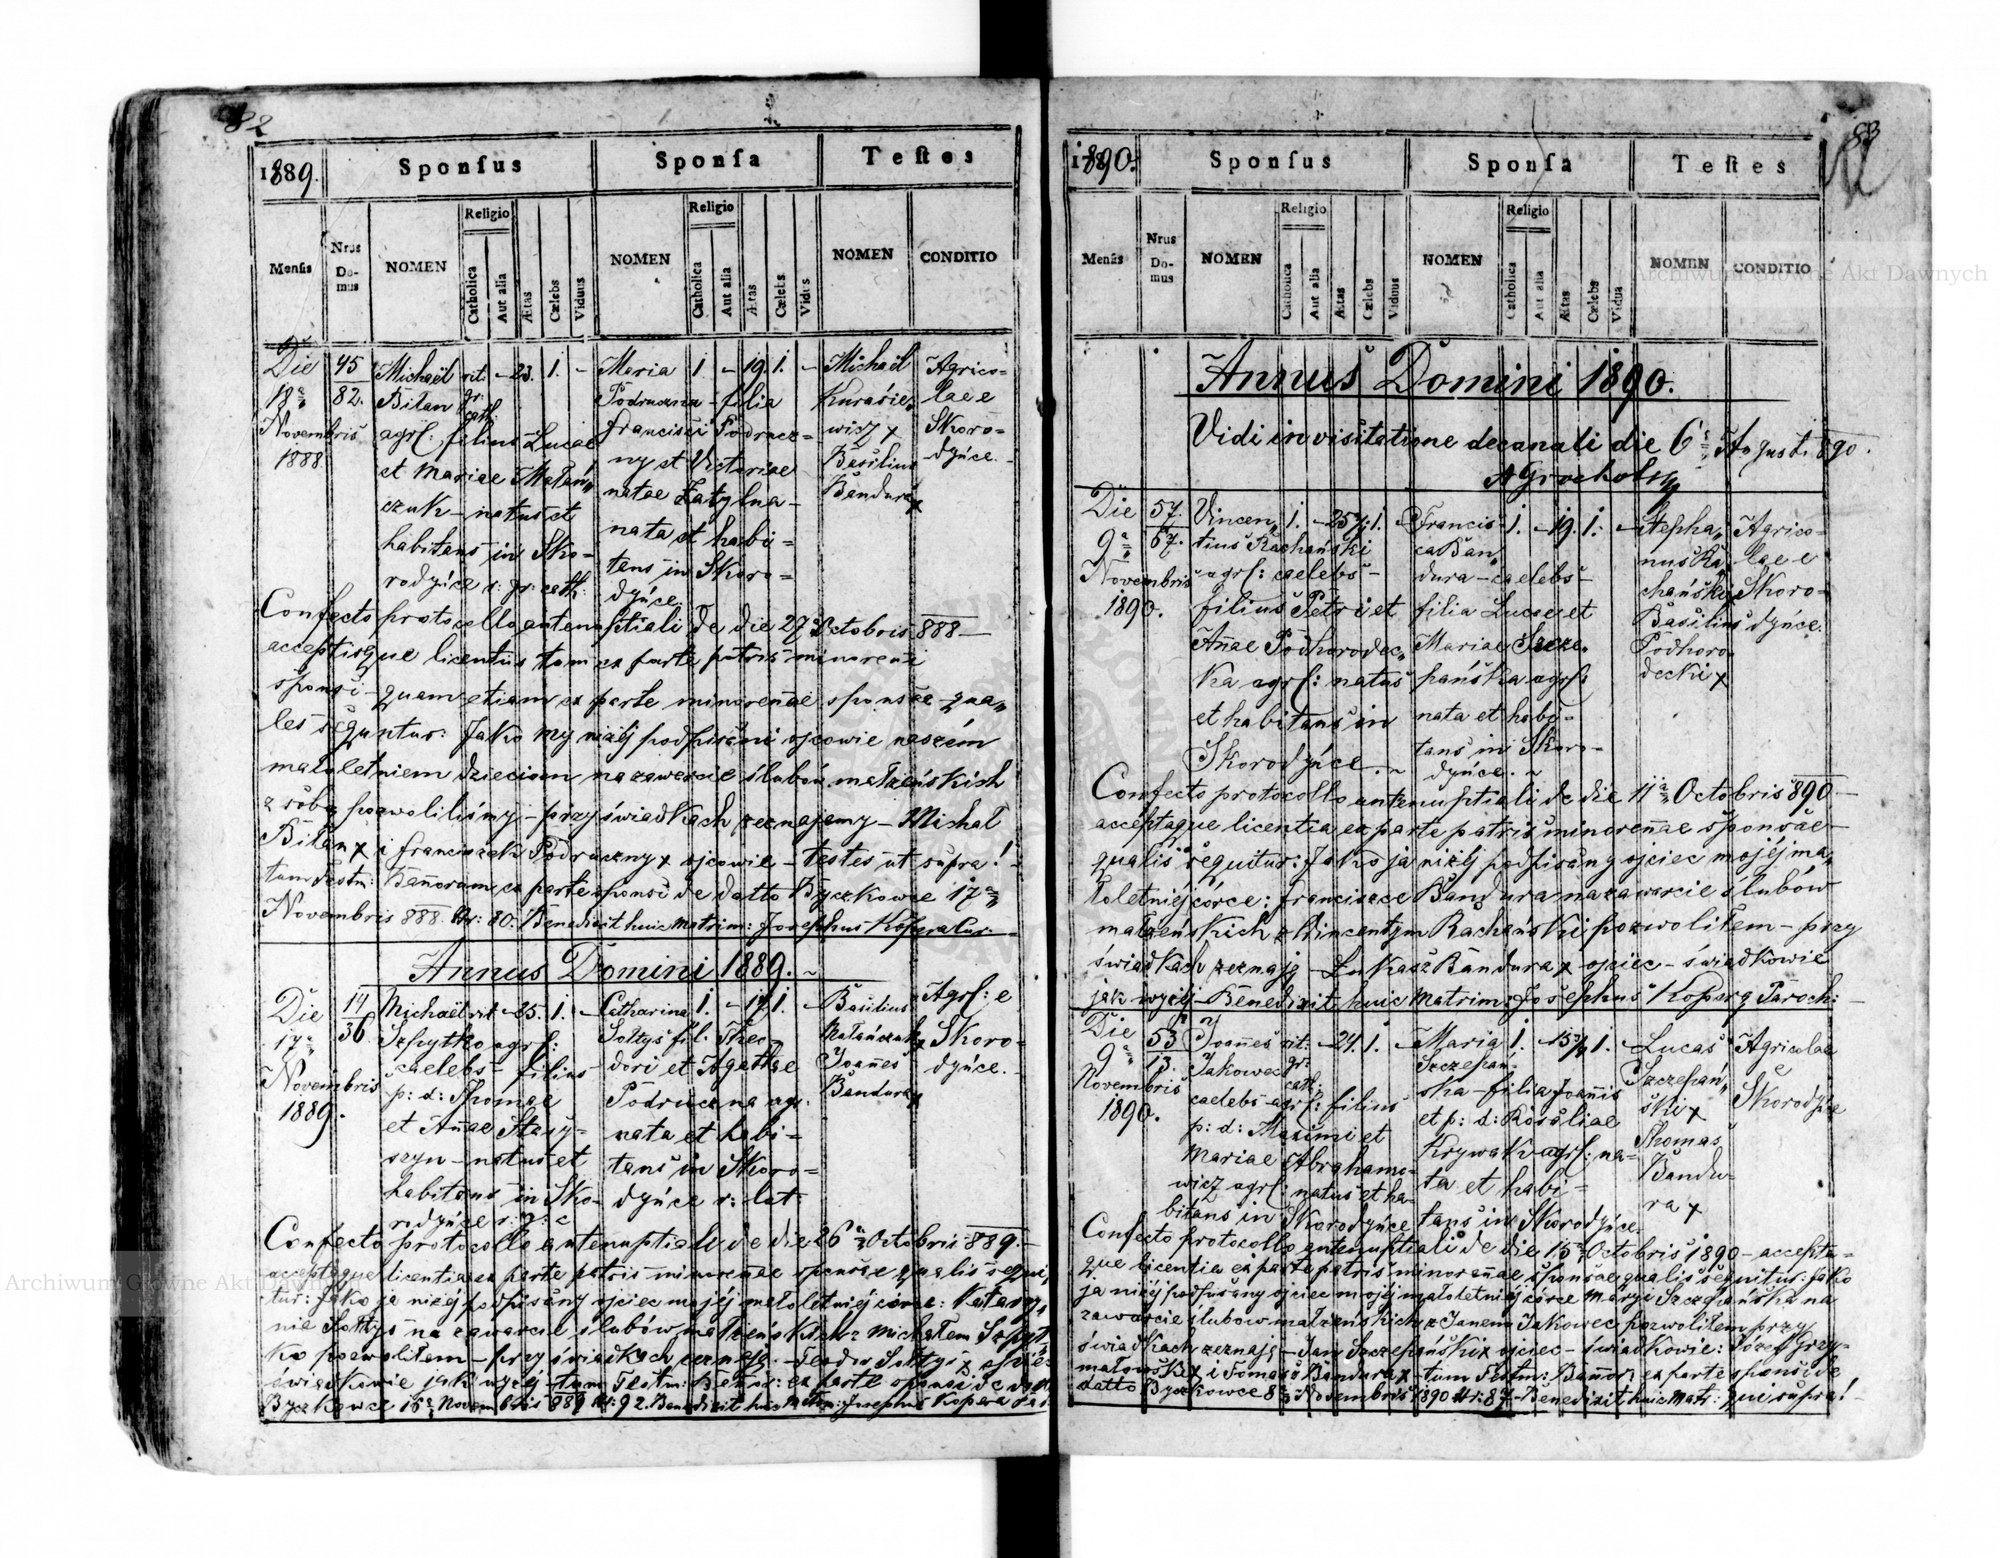 82
1889.
Sponſus
Sponſa
Teſtes
Menſis
Nrus Do-mus
NOMEN
Religio
Catholica
Aut alia
Ætas
Cælebs
Viduus
NOMEN
Religio
Catholica
Aut alia
Ætas
Cælebs
Vidus
NOMEN
CONDITIO
Die
18ª
Novembris
1888.
45
82.
Michaël rit. – 23. 1. –
Bilan gr. cath.
agrl: filius Lucae
et Mariae Matań„
czuk – natus et
habitans in Sko-
rodyńce r: gr: cath:
Maria 1 – 19. 1. –
Podruczna – filia
Francisci Podrucz=
ny et Victoriae
natae Zatylna –
nata et habi=
tans in Skoro=
dyńce
Michaël
Kurasie„
wicz x
Basilius
Bandura x
Agrico-
lae e
Skoro-
dyńce. –
Confecto protocollo antenuptiali de die 27ª Octobris 888 –
acceptisque licentiis tam ex parte patris minorenis
sponsi – quam etiam ex parte minorenae sponsae qua„
les sequntur: Jako my niżéj podpisani ojcowie naszém
małoletniem dzieciom na zawarcie ślubów małżeńskich
z sobą pozwoliliśmy – przy świadkach zeznajemy – Michał
Bilan x i Franciszek Podruczny x ojcowie – testes ut supra! –
tum testm: Bannorum ex parte sponsi de datto Byczkowce 17ª
Novembris 888. Nr: 80. Benedixit huic matrim: Josephus Kopera
Annus Domini 1889. ~
Die
17ª
Novembris
1889.
14
36
Michaël rit – 25. 1. –
Szpytko agrl:
caelebs – filius
p: d: Thomae
et Annae Stasy-
szyn – natus et
habitans in Sko-
rodyńce r: g: c
Catharina 1. – 17. 1. –
Sołtys fil. Theo-
dori et Agathae
Podruczna agr.
nata et habi=
tans in Skoro=
dyńce r: lat:
Basilius
Matańczuk x
Joannes
Bandura x
Agrl: e
Skoro-
dyńce. –
Confecto protocollo antenuptiali de die 26ª Octobris 889. –
acceptaque licentia ex parte patris minorenae sponsae qualis sequi„
tur: Jako ja niżéj podpisany ojciec mojéj małoletniéj córce: Katarzy„
nie Sołtys na zawarcie ślubów małżeńskich z Michałem Szpyt„
ko pozwoliłem – przy świadkach zeznaję. – Teodor Sołtys x ojciec
świadkowie jak wyżéj – tum Testm: Bannor: ex parte sponsi de datto
Byczkowce 15ª Novembris 889 Nr: 92. Benedixit huic matrim: Josephus Kopera
83
1890.
Sponſus
Sponſa
Teſtes
Menſis
Nrus Do-mus
NOMEN
Religio
Catholica
Aut alia
Ætas
Cælebs
Viduus
NOMEN
Religio
Catholica
Aut alia
Ætas
Cælebs
Vidua
NOMEN
CONDITIO
Annus Domini 1890.
Vidi in visitatione decanali die 6ª Augusti 890.
AGrocholsky
Die
9ª
Novembris
1890.
57.
67.
Vincen„ 1. – 25 1. –
tius Rachański
agrl: caelebs –
filius Petri et
Annae Podhorodec„
ka agrl: natus
et habitans in
Skorodyńce. ~
Francis„ 1. – 19. 1. –
ca Ban„
dura – caelebs –
filia Lucae et
Mariae Szcze„
pańska agrl:
nata et habi-
tans in Skoro-
dyńce. ~
Stepha„
nus Ra„
chański x
Basilius
Podhoro„
decki x
Agrico-
lae e
Skoro-
dyńce.
Confecto protocollo antenuptiali de die 11ª Octobris 890 –
acceptaque licentia ex parte patris minorenae sponsae –
qualis sequitur: Jako ja niżéj podpisany ojciec mojéj ma„
łoletniéj córce: Francisce Bandura na zawarcie ślubów
małżeńskich z Wincentym Rachański pozwoliłem – przy
świadkach zeznaję – Łukasz Bandura x ojciec – świadkowie
jak wyżéj – Benedixit huic Matrim: Josephus Kopera Paroch: –
Die
9ª
Novembris
1890.
53
13.
Joannes rit: – 24. 1. –
Jakowec gr: cath:
caelebs agrl: filius
p: d: Maximi et
Mariae Abrahamo-
wicz agrl: natus et ha-
bitans in Skorodyńce
Maria 1. – 15 1. –
Szczepań-
ska – filia Joannis
et p: d: Rosaliae
Krywak agrl: na-
ta et habi=
tans in Skorodyńce
Lucas
Szczepań„
ski x
Thomas
Bandu-
ra x
Agricolae
e
Skorodyńce
Confecto protocollo antenuptiali de die 15ª Octobris 1890 – accepta=
que licentia ex parte patris minorenae sponsae qualis sequitur: Jako
ja niżéj podpisany ojciec mojéj małoletniéj córce Maryi Szczepańska na
zawarcie ślubów małżeńskich z Janem Jakowec pozwoliłem przy
świadkach zeznaję – Jan Szczepański x ojciec – świadkowie: Józef Grzy-
małowski x i Tomasz Bandura x tum Testm: Bannor: ex parte sponsi de
datto Byczkowce 8ª Novembris 1890 Nr: 87 – Benedixit huic Matr: qui supra! –
Archiwum Główne Akt Dawnych
Archiwum Główne Akt Dawnych